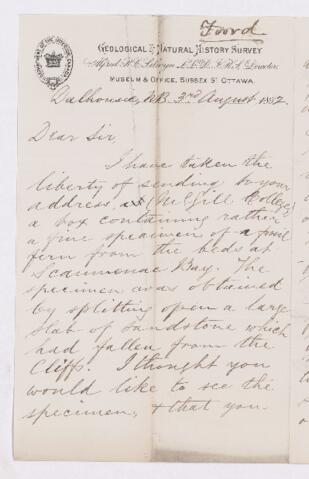 Foord
GEOLOGICAL & NATURAL HISTORY SURVEY
Alfred R. C. Selwyn L.L.D. F.R.S. Director.
MUSEUM & OFFICE, SUSSEX ST OTTAWA.
Dalhousie, N.B. 3rd August 1882
Dear Sir,
I have taken the
liberty of sending to your
address, at McGill College,
a box containing rather
a fine specimen of a fossil
fern from the beds at
Scaumenac Bay. The
specimen was obtained
by splitting open a large
slab of sandstone which
had fallen from the
Cliffs. I thought you
would like to see the
specimen, & that you